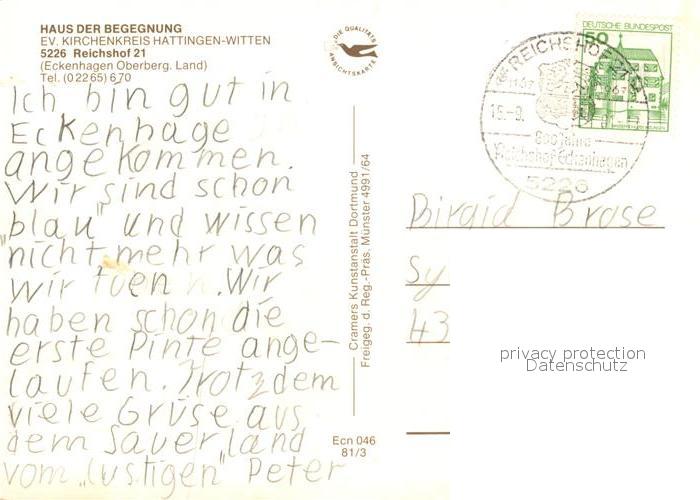 HAUS DER BEGEGNUNG
EV. KIRCHENKREIS HATTINGEN-WITTEN
5226 Reichshof 21
(Eckenhagen Oberberg. Land)
Tel. (0 22 65) 6 70
Ich bin gut in
Eckenhage
angekommen.
Wir „sind schon
blau" und wissen
„nicht mehr was
wir tuen. Wir
haben schon die
erste Pinte ange-
laufen. Trotzdem
viele Grüse aus
dem Sauerland
vom „lustigen" Peter
DIE QUALITÄTS
ANSICHTSKARTE
Cramers Kunstanstalt Dortmund
Freigeg. d. Reg.-Präs. Münster 4991/64
Ecn 046
81/3
DEUTSCHE BUNDESPOST
50
REICHSHOF
15.-9.
800 Jahre
Reichshof-Eckenhagen
5226
Brose
Sy
43
privacy protection
Datenschutz